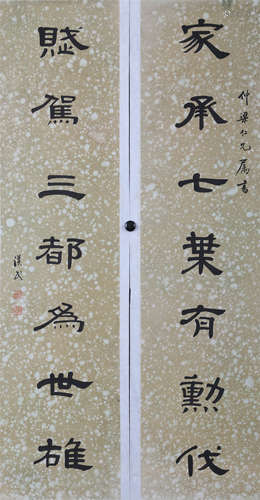 家承七葉有勳伐
仲梁仁兄屬書
賦駕三都為世雄
漢民